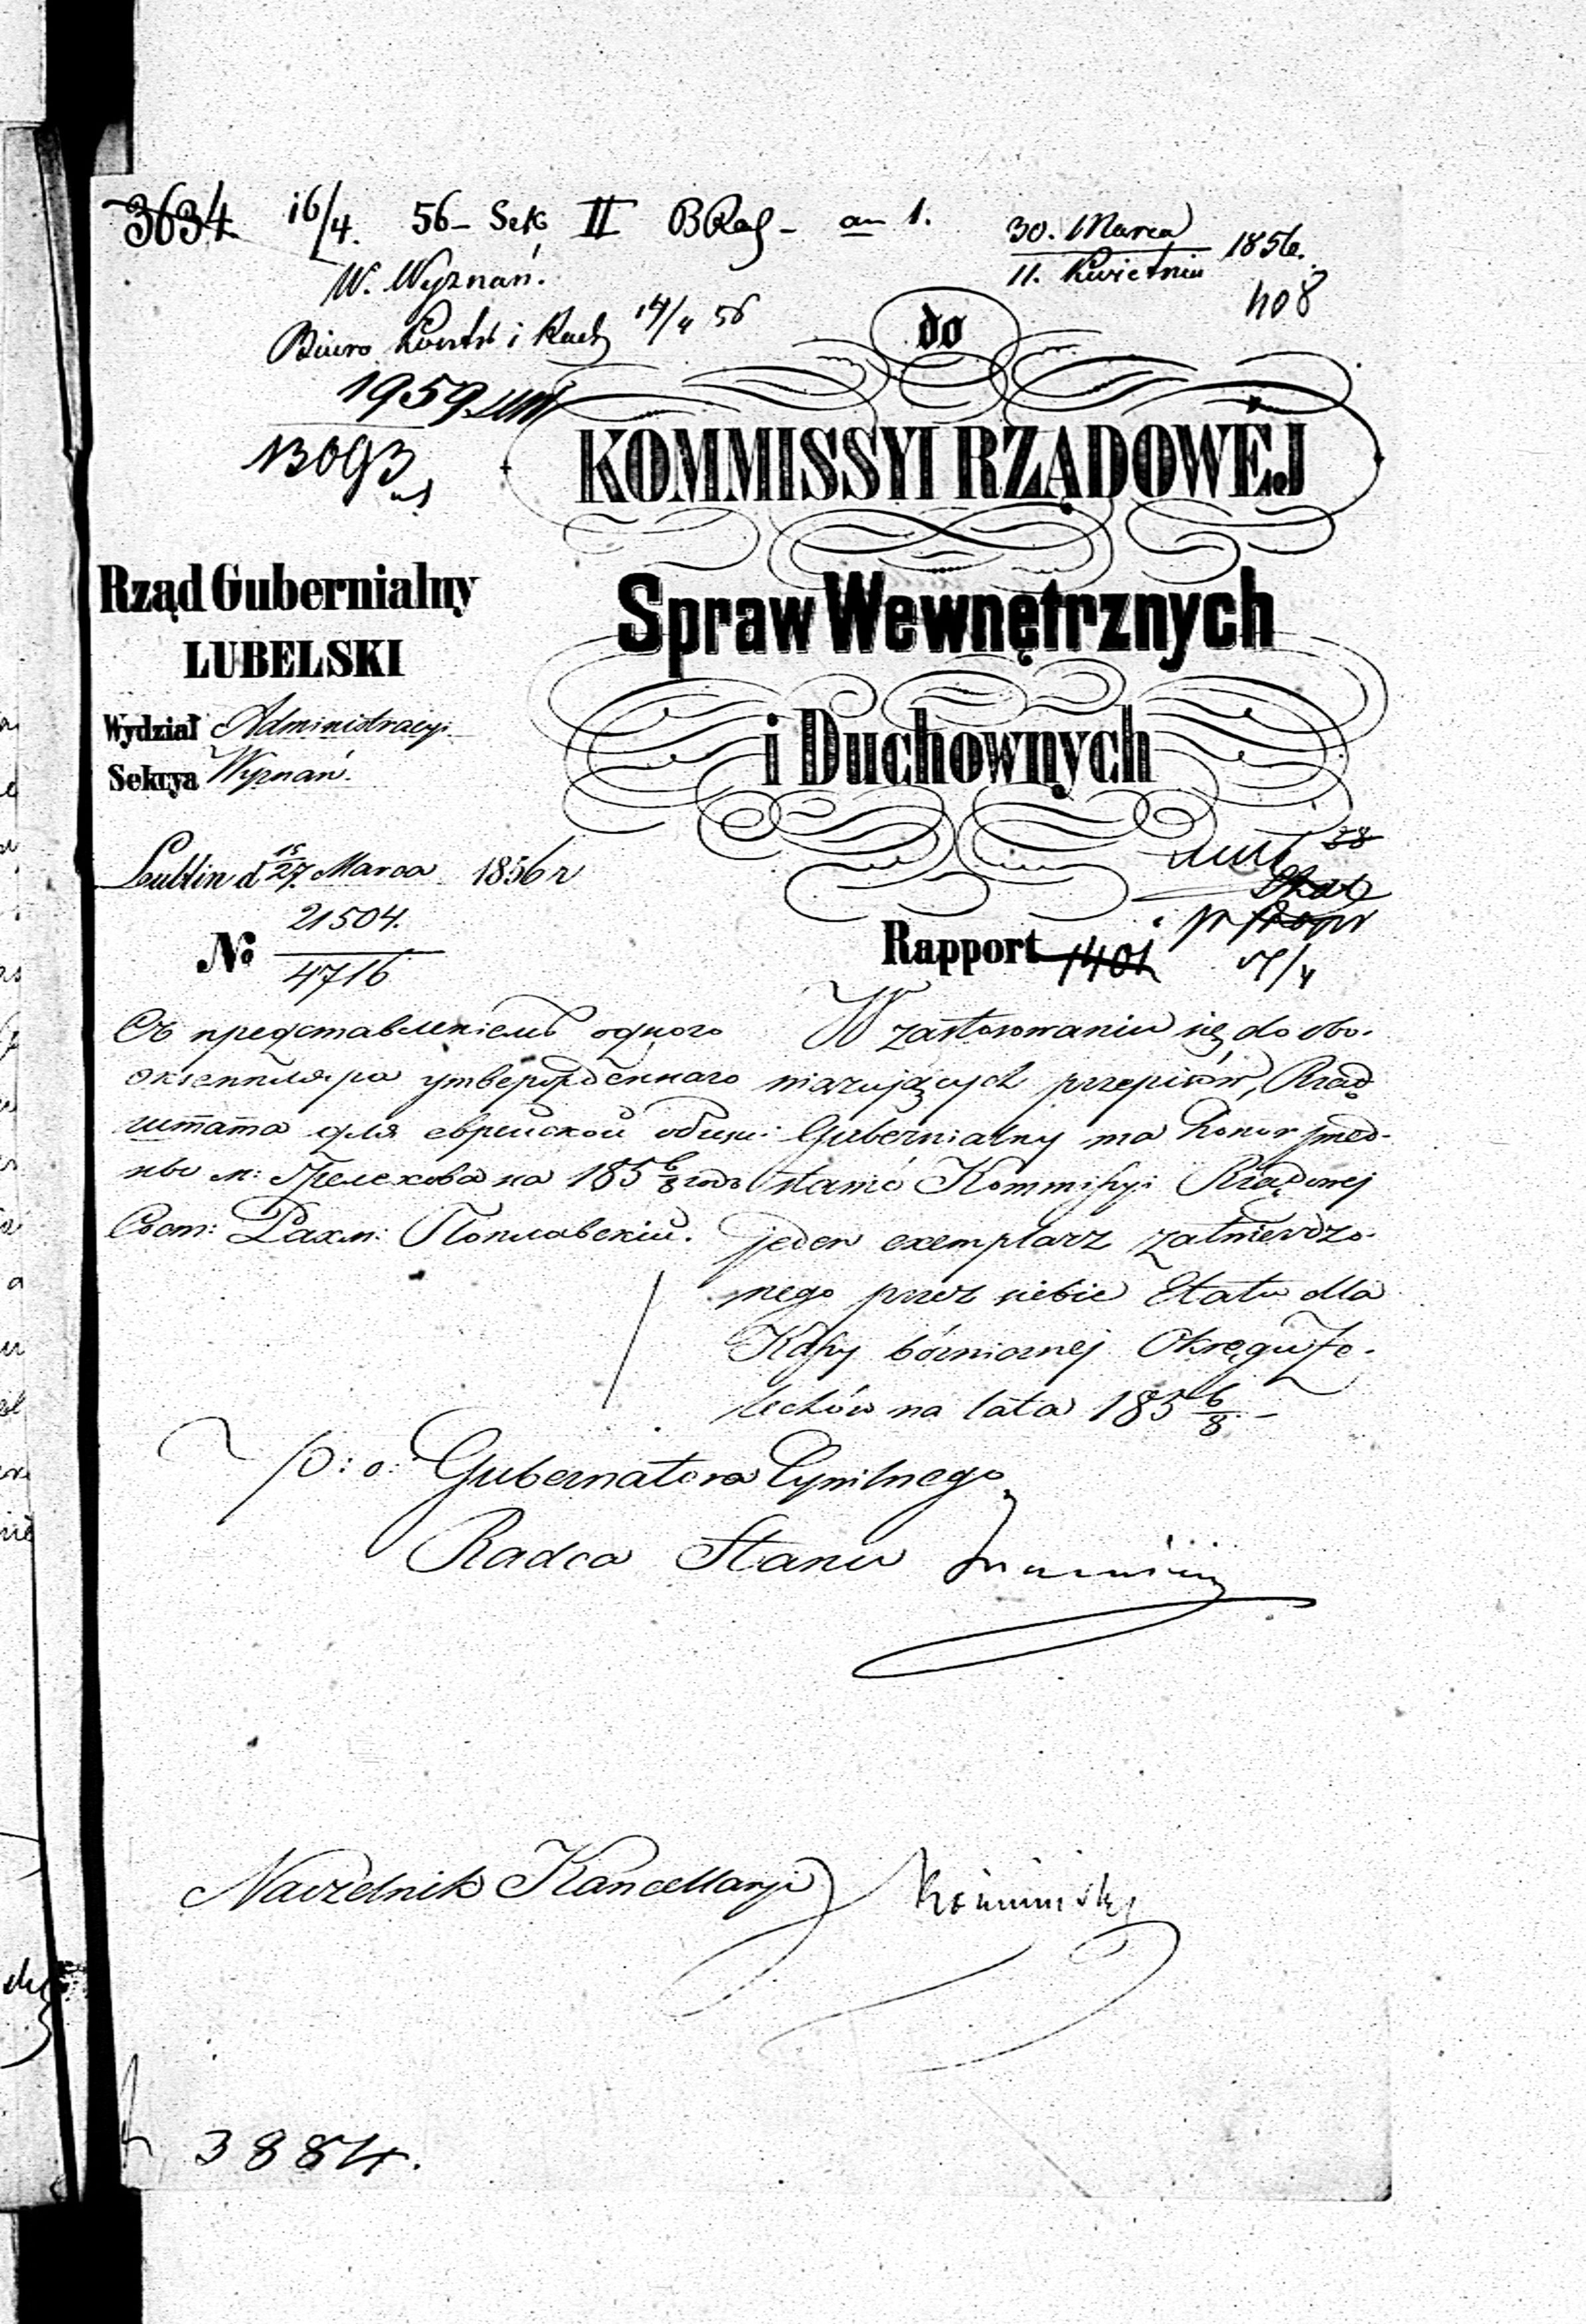 3634. 16/4. 56 – Sek II BRas – an 1.
30. Marca 1856.
11. Kwietnia
W. Wyznań.
408
Biuro Kontr i Rach 14/4 56
do
1959
13093
KOMMISSYI RZĄDOWÉJ
Rząd Gubernialny
LUBELSKI
Spraw Wewnętrznych
i Duchownych
Wydział Administracyi
Sekcya Wyznań.
38
Lublin d 15/27. Marca 1856 r
21504.
№
4716
Rapport 1401
Съ представленіемъ одного
экземпляра утвержденнаго
штата для еврейской общи:
ны м: Желехова на 185 6/8 годъ
Сост: Рахм: Поплавскій.
W zastosowaniu się do obo-
wiązujących przepisów, Rząd
Gubernialny ma honor przed-
stawić Kommissyi Rządowej
jeden exemplarz zatwierdzo-
nego przez siebie Etatu dla
Kassy bóżnicznej Okręgu Że-
lechów na lata 185 6/8 –
p: o: Gubernatora Cywilnego
Radca Stanu
Naczelnik Kancellaryi
3884.